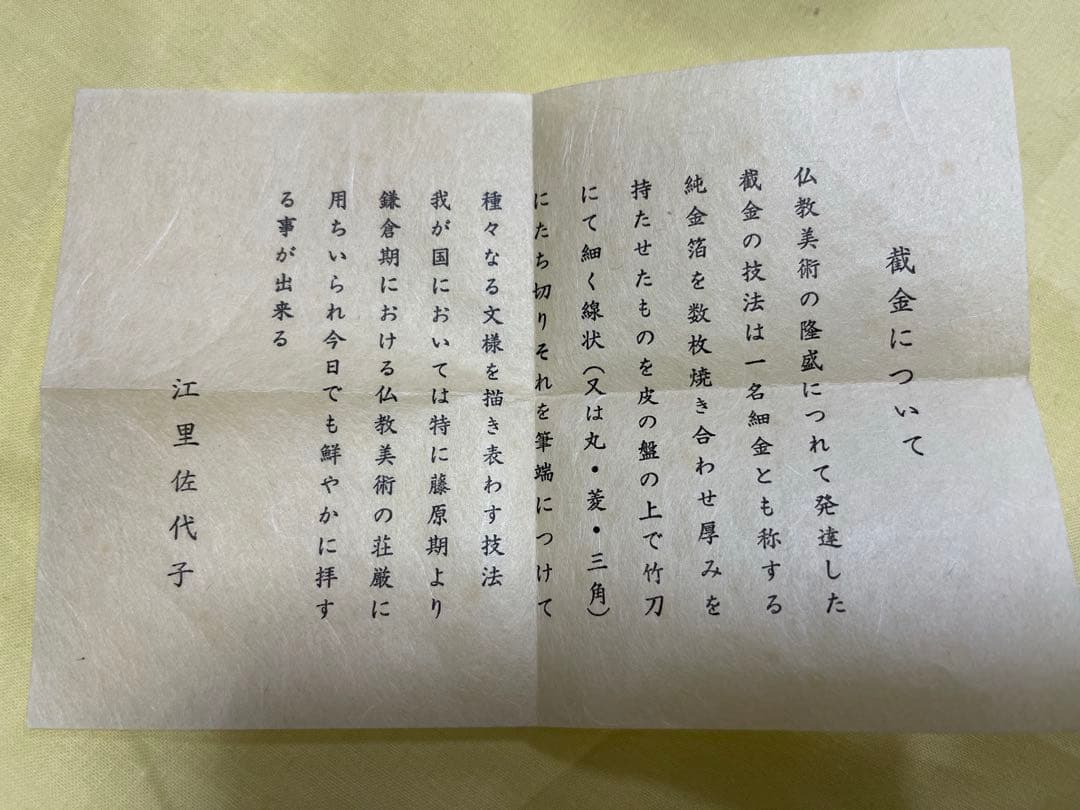 截金について
仏教美術の隆盛につれて発達した
截金の技法は一名細金とも称する
純金箔を数枚焼き合わせ厚みを
持たせたものを皮の盤の上で竹刀
にて細く線状(又は丸・菱・三角)
にたち切りそれを筆端につけて
種々なる文様を描き表わす技法
我が国においては特に藤原期より
鎌倉期における仏教美術の荘厳に
用ちいられ今日でも鮮やかに拝す
る事が出来る
江里佐代子